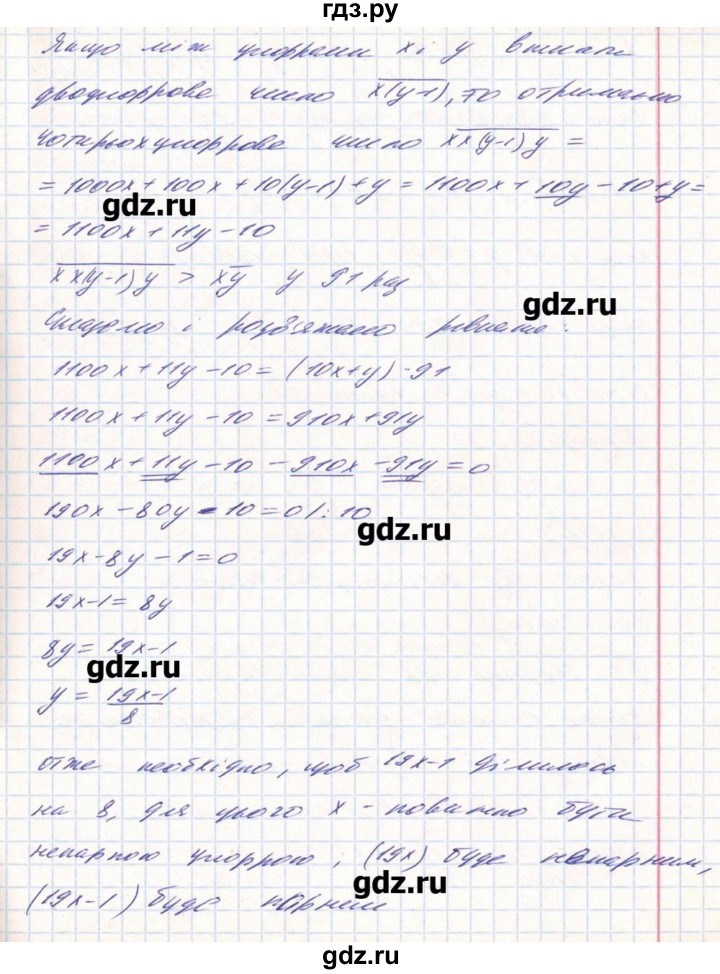 гдз.ру
Якщо між цифрами x і y вписати
двоцифрове число x(y-1), то отримаємо
чотирьохцифрове число xx(y-1)y =
= 1000x + 100x + 10(y-1) + y = 1100x + 10y - 10 + y =
gdz.ru
= 1100x + 11y - 10
xx(y-1)y > xy у 91 раз
gdz.ru
Складемо і розв'яжемо рівняння:
1100x + 11y - 10 = (10x+y)·91
1100x + 11y - 10 = 910x + 91y
1100x + 11y - 10 - 910x - 91y = 0
190x - 80y - 10 = 0 /:10
gdz.ru
19x - 8y - 1 = 0
19x - 1 = 8y
8y = 19x - 1
gdz.ru
y = (19x-1)/8
отже необхідно, щоб 19x-1 ділилось
на 8, для цього x - повинно бути
непарною цифрою, (19x) буде непарним,
gdz.ru
(19x-1) буде парним
gdz.ru